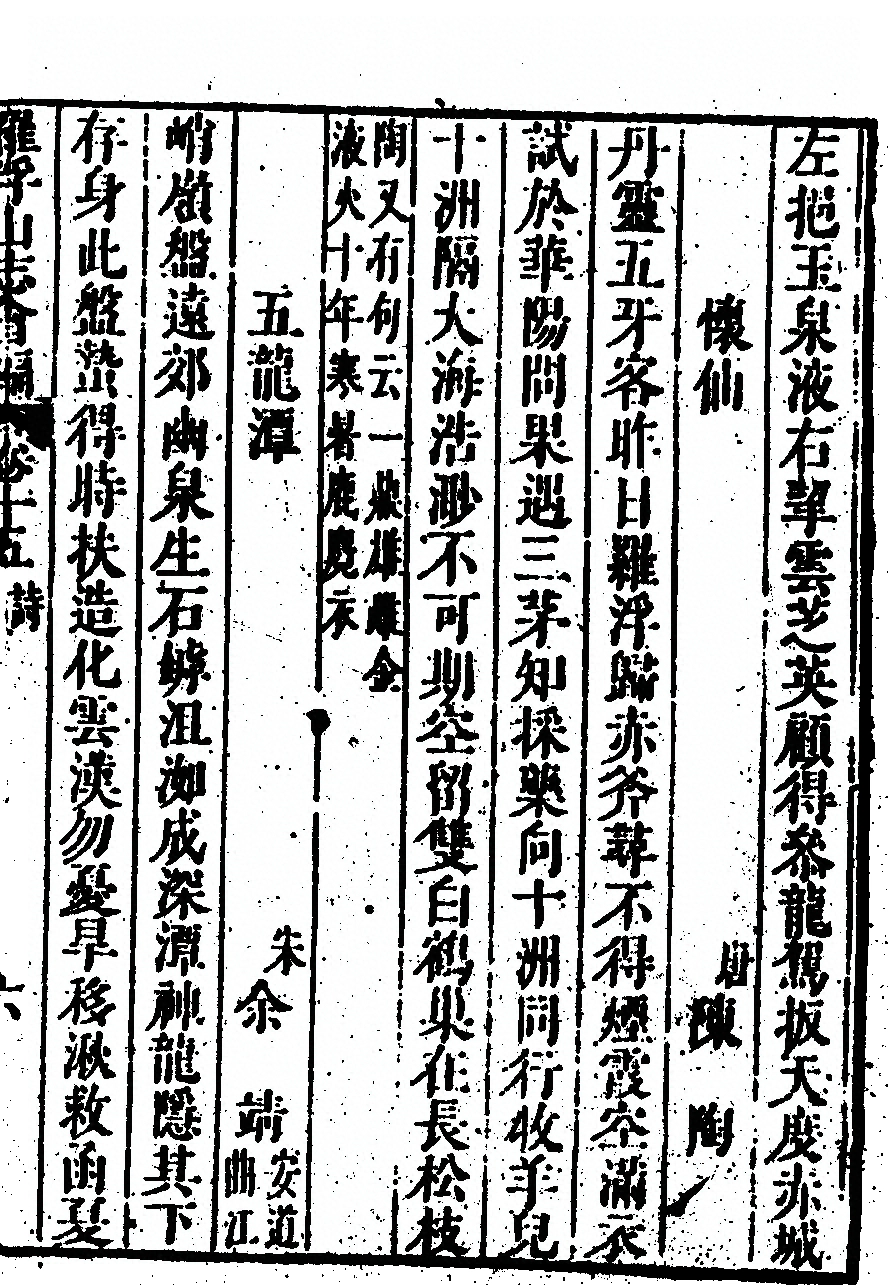 左挹玉泉液右挐雲芝英顧得叅龍駕扳天度赤城
懷仙 唐陳陶
丹靈五牙客昨日羅浮歸赤斧尋不得煙霞空滿衣
試於華陽問果遇三茅知採藥向十洲同行收羊兒
十洲隔大海浩渺不可期空留雙白鶴巢在長松枝
陶又有句云一鼎雄雌金
液火十年寒暑鹿麑衣
五龍潭 宋余靖 安道
曲江
峭嶺盤遠郊幽泉生石罅沮洳成深潭神龍隱其下
存身此盤蟄得時扶造化雲漢勿憂旱移湫救函夏
羅浮山志會編 卷十五 詩 六